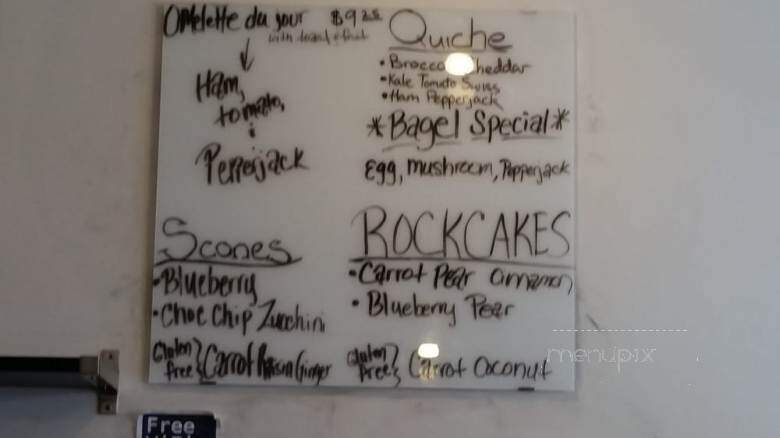 Omelette du jour $9.25
with toast & fruit
Ham,
tomato,
&
Pepperjack
Quiche
• Broccoli Cheddar
• Kale Tomato Swiss
• Ham Pepperjack
*Bagel Special*
Egg, mushroom, Pepperjack
Scones
• Blueberry
• Choc Chip Zucchini
Gluten Free } Carrot Raisin Ginger
ROCKCAKES
• Carrot Pear Cinnamon
• Blueberry Pear
Gluten Free } Carrot Coconut
menupix
Free